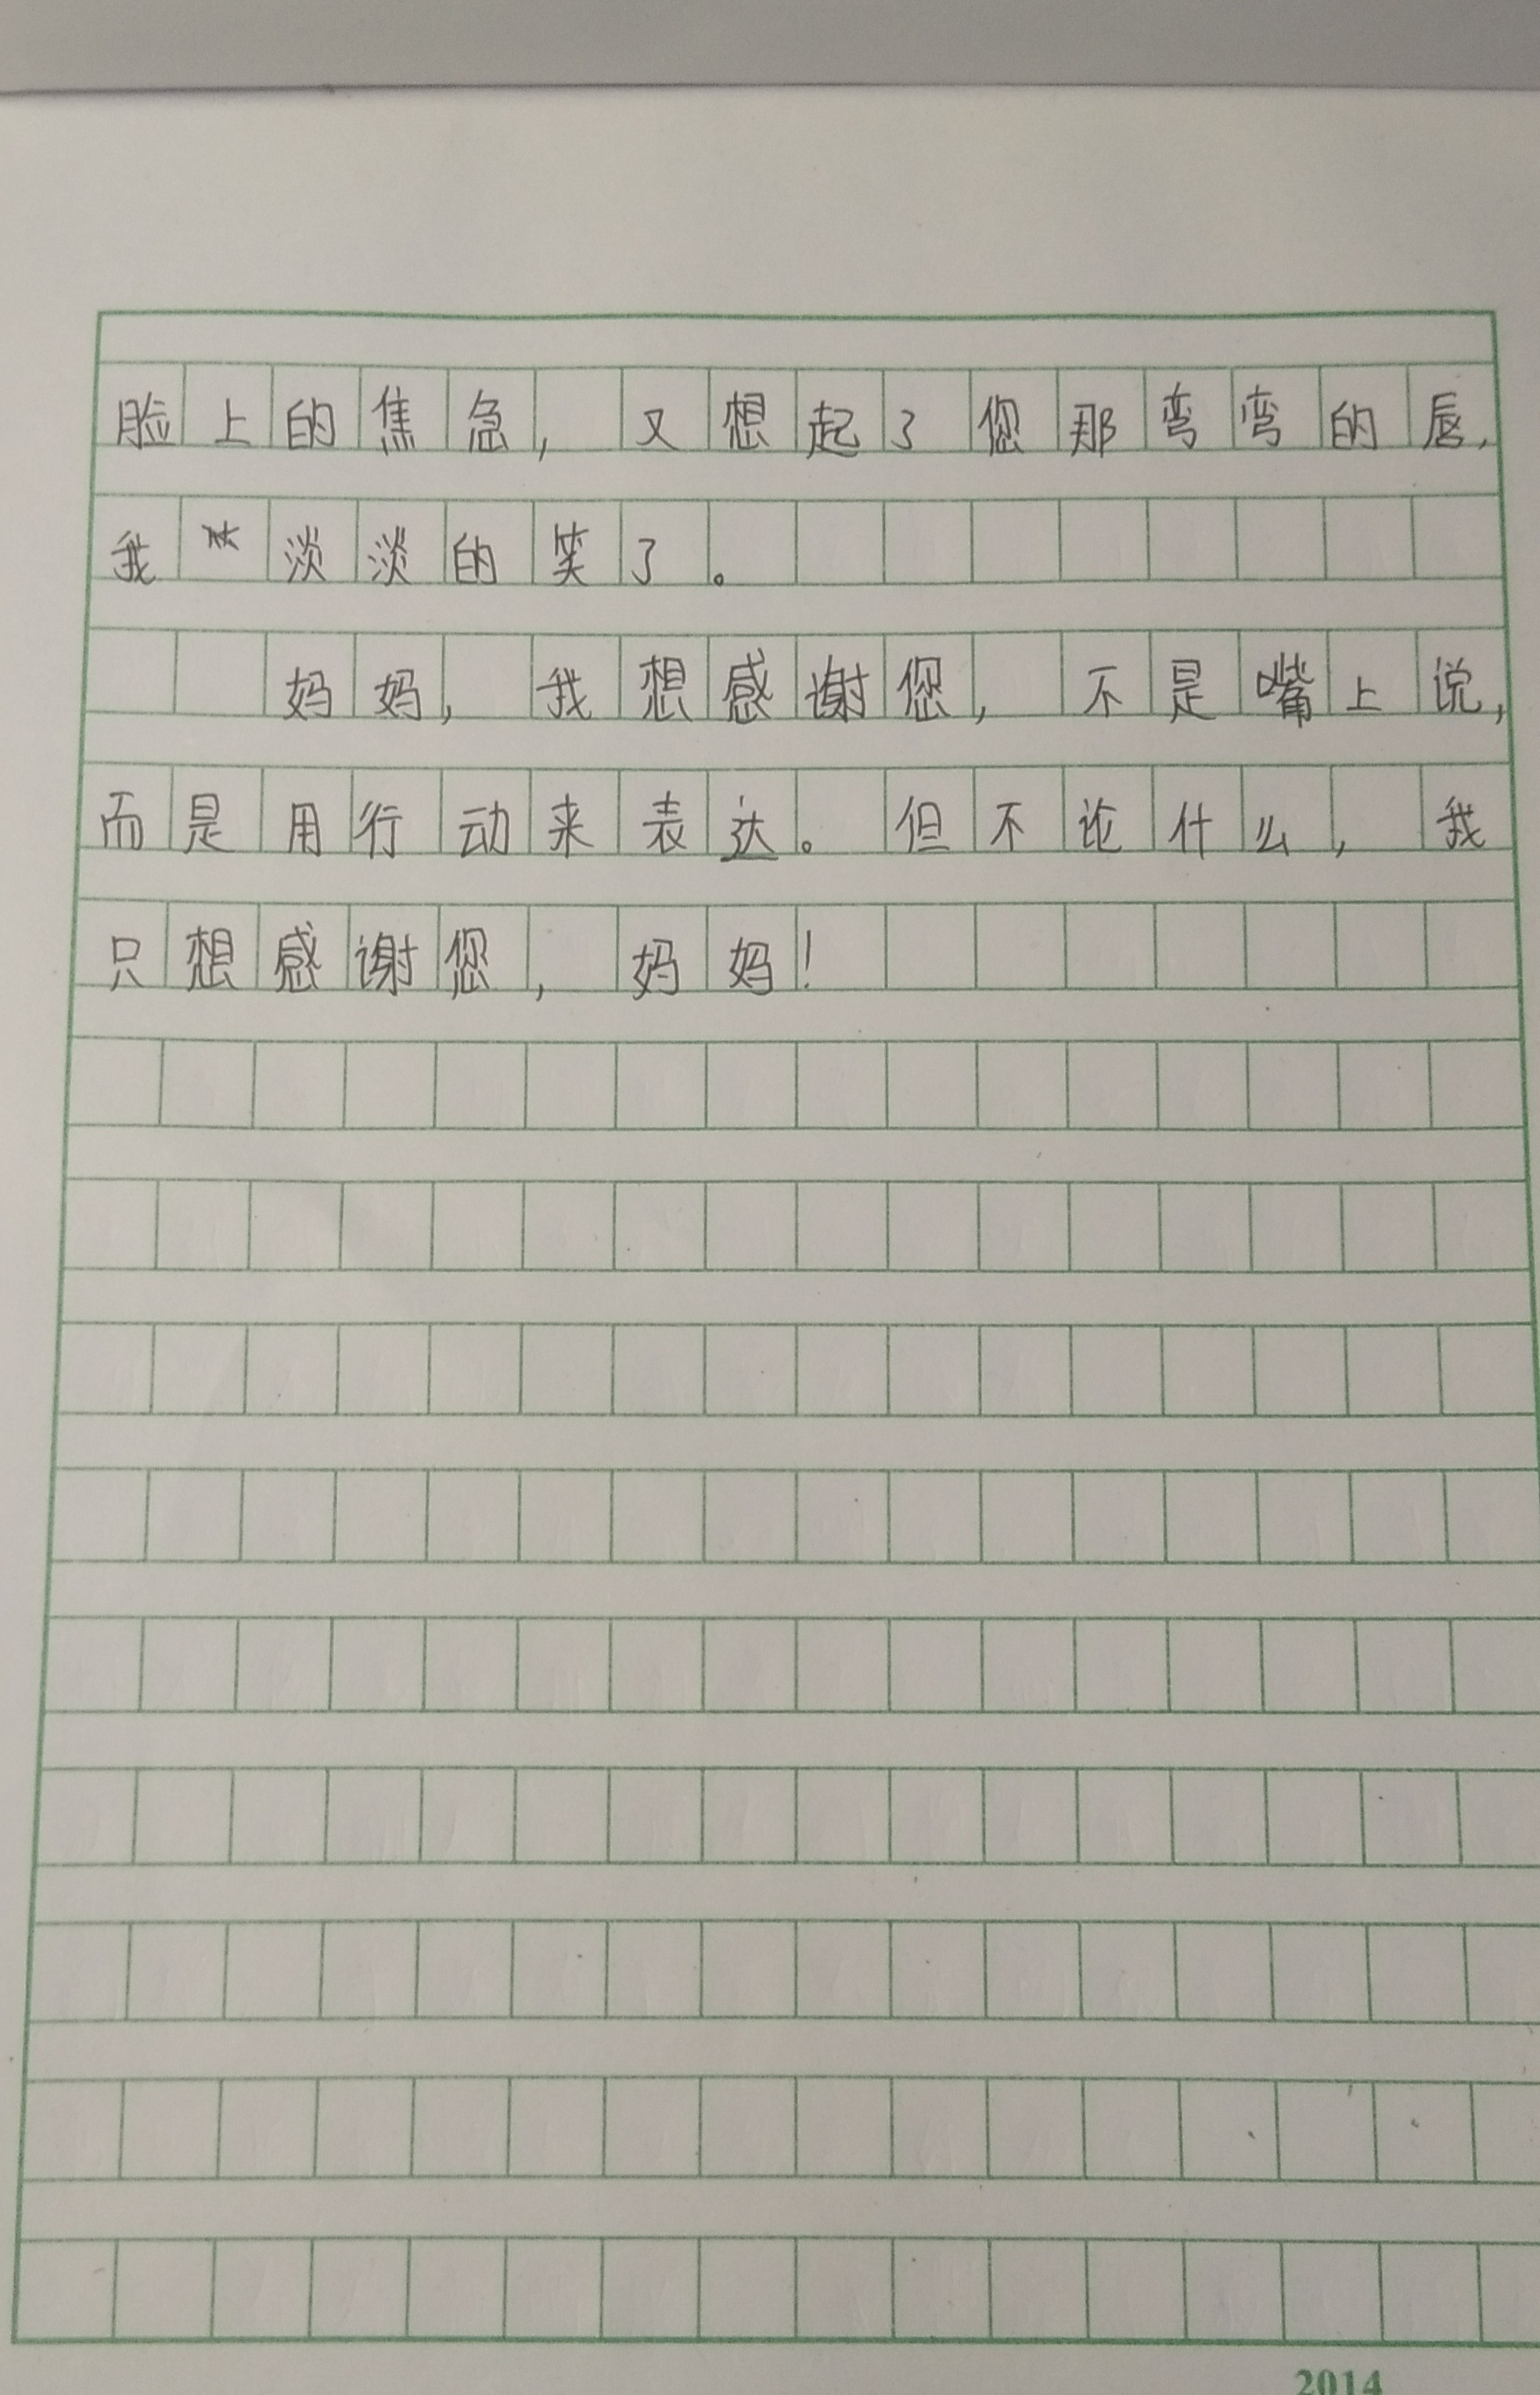 脸上的焦急，又想起了您那弯弯的唇，
我淡淡的笑了。
妈妈，我想感谢您，不是嘴上说，
而是用行动来表达。但不论什么，我
只想感谢您，妈妈！
2014